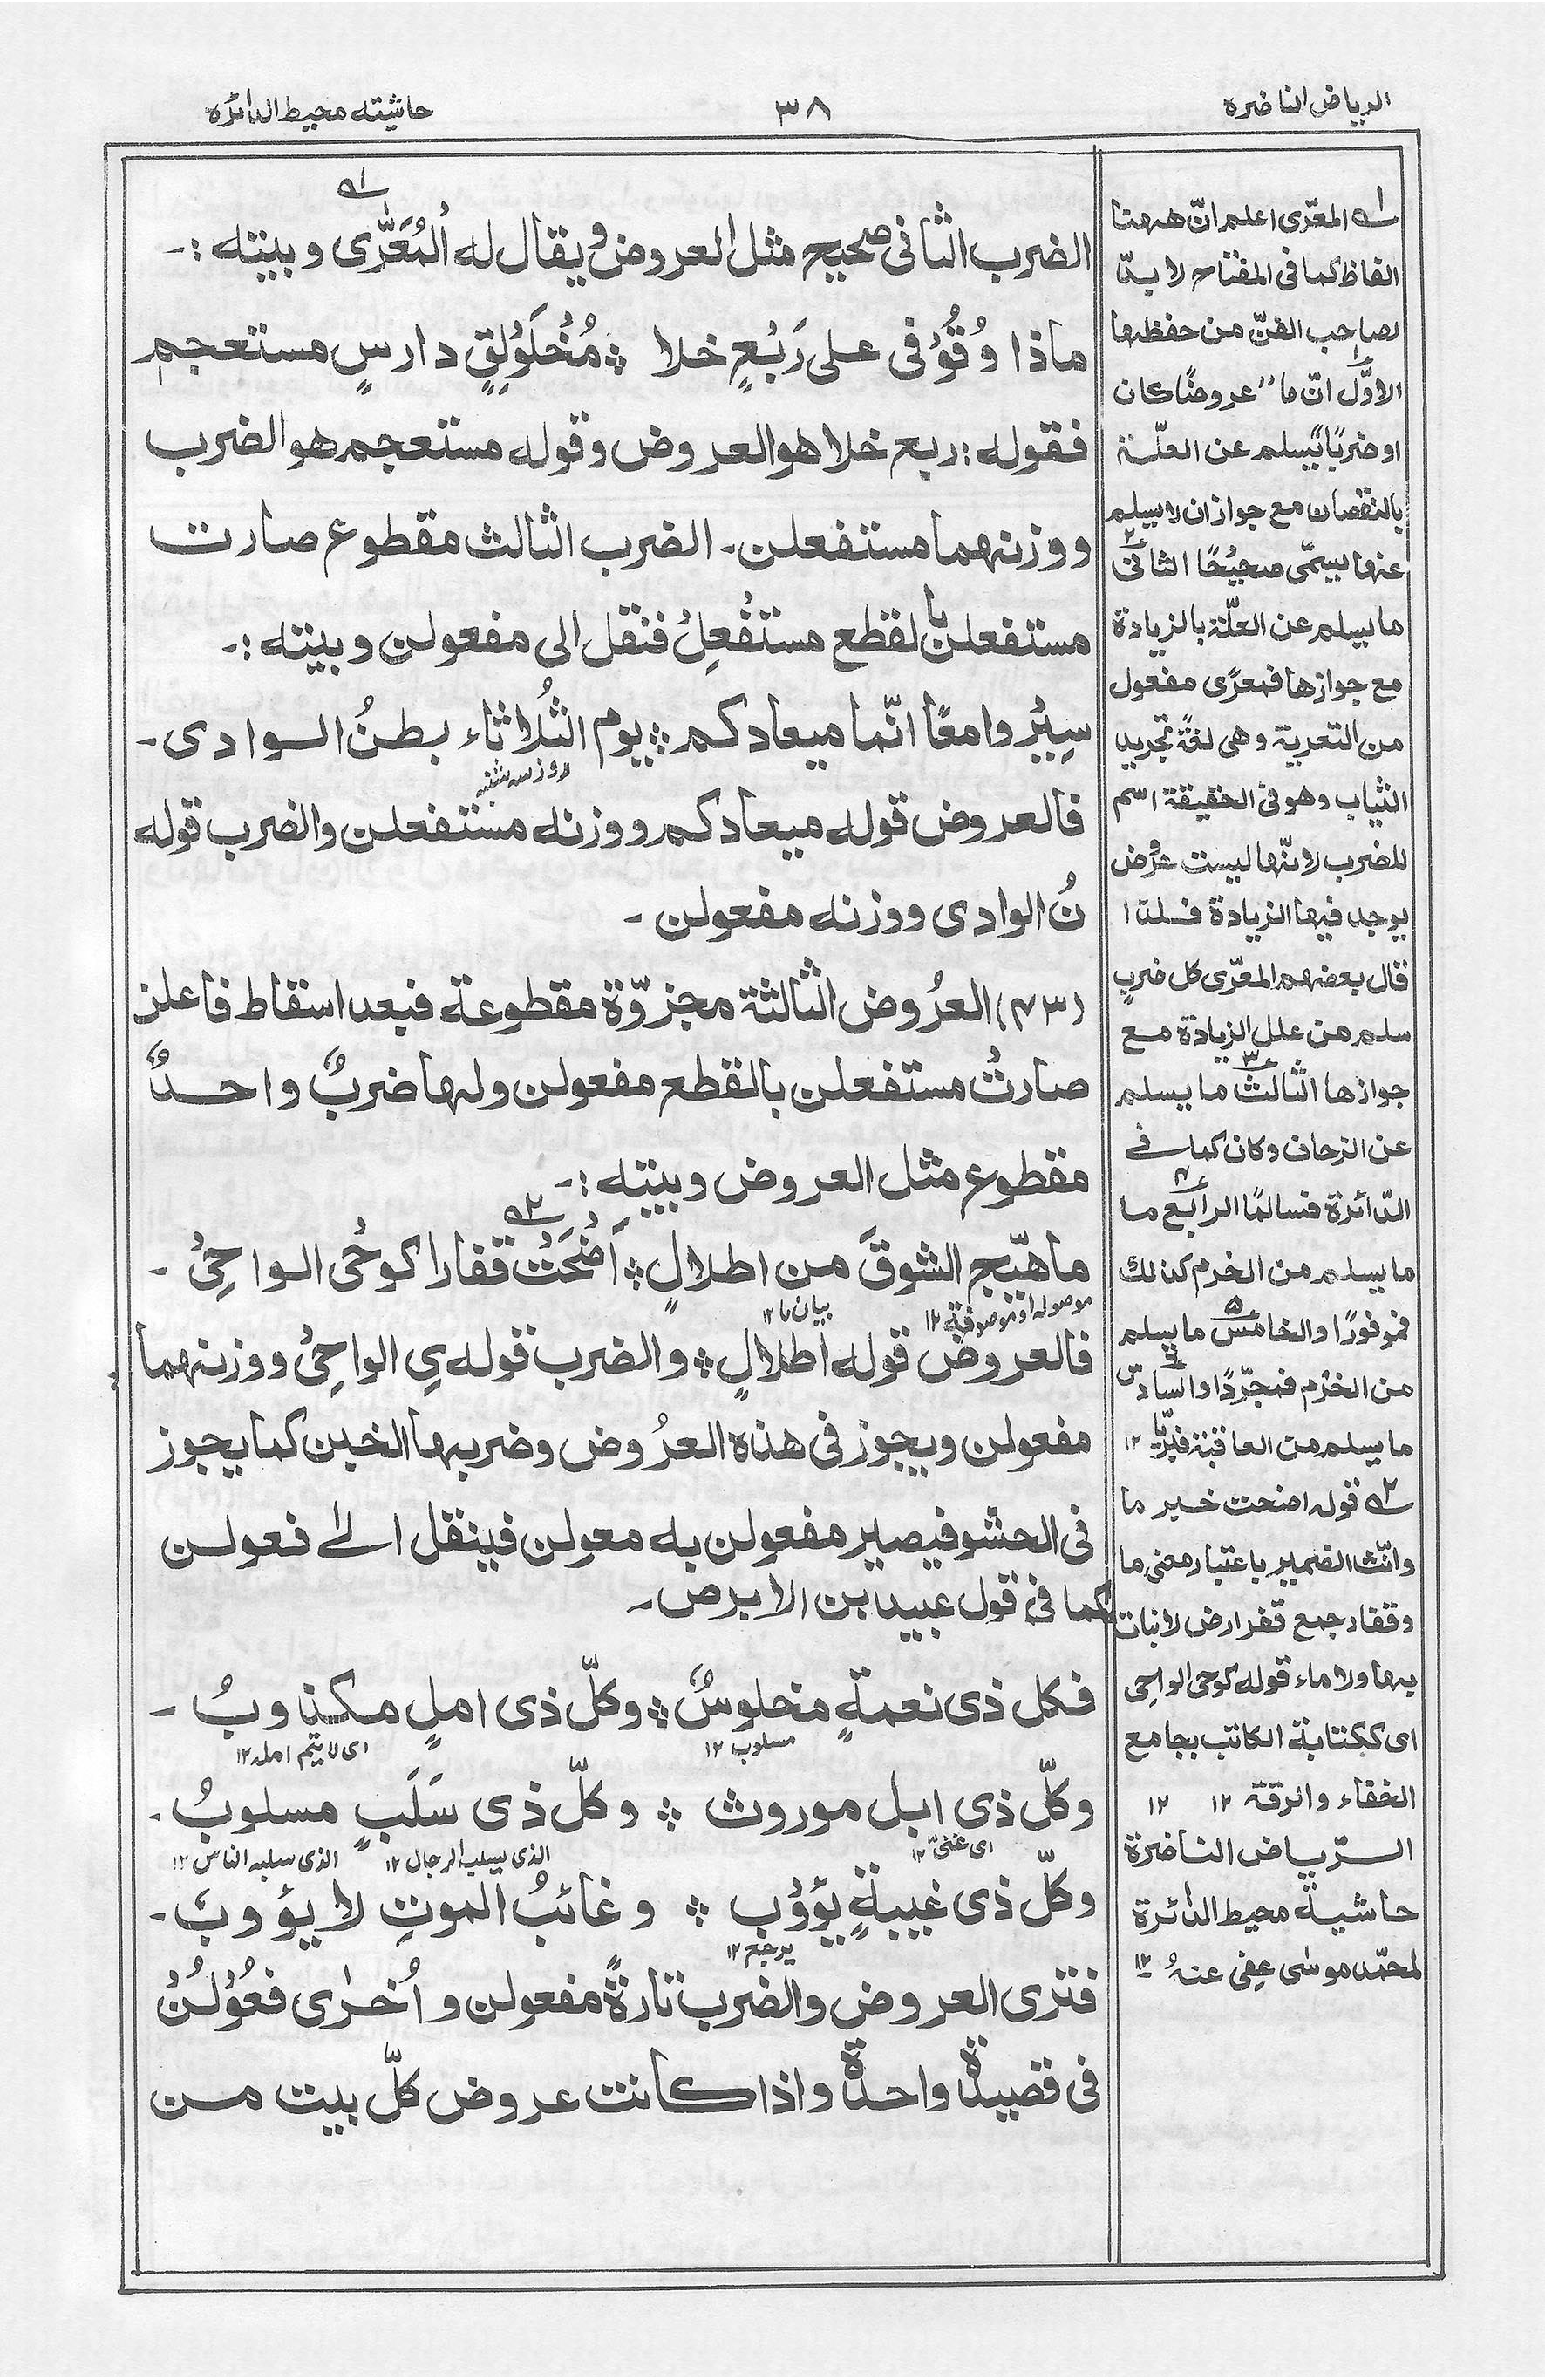 الرياض الناضرة
٣٨
حاشيته محيط الدائرة
الضرب الثانى صحيح مثل العروض ويقال له اُلمُعَرَّى وبيته :-
ماذا وُقُوْفى على رَبْعٍ خلا ؞ مُخْلَوْلِقٍ دارسٍ مستعجم
فقوله : ربع خلا هو العروض وقوله مستعجم هو الضرب
ووزنهما مستفعلن ـ الضرب الثالث مقطوع صارت
مستفعلن بالقطع مستفْعِلْ فنقل الى مفعولن وبيته :-
سِيْرُوا معًا انّما ميعادكم ؞ يوم الثُلاثاء بطنُ الوادى ـ
روز سه شنبه
فالعروض قوله ميعادكم ووزنه مستفعلن والضرب قوله
نُ الوادى ووزنه مفعولن ـ
(٤٣) العرُوض الثالثة مجزوّة مقطوعة فبعد اسقاط فاعلن
صارتْ مستفعلن بالقطع مفعولن ولها ضربٌ واحدٌ
مقطوع مثل العروض وبيته :-
ما هيّج الشوقَ من اطلالٍ ؞ اَضْحَتْ قفارا كوحْى الواحِىْ ـ
موصوله او موصوفة ١٢
بيان ما ١٢
فالعروض قوله اطلالٍ ؞ والضرب قوله ىِ الواحِىْ ووزنهما
مفعولن ويجوز فى هذه العرُوض وضربها الخبن كما يجوز
فى الحشو فيصير مفعولن به معولن فينقل الى فعولن
كما فى قول عبيد ابن الابرص ـ
فكل ذى نعمةٍ مخلوسٌ ؞ وكلّ ذى املٍ مكذوبُ ـ
مسلوب ١٢
اى لا يتم امله ١٢
وكلّ ذى ابل موروث ؞ وكلّ ذى سَلَبٍ مسلوبُ ـ
اى غنىّ ١٢
الذى يسلب الرجال ١٢
الذى سلبه الناس ١٢
وكلّ ذى غيبةٍ يؤوْب ؞ وغائبُ الموتِ لا يؤوبُ ـ
يرجع ١٢
فترى العروض والضرب تارةً مفعولن واُخرٰى فعُوْلُنْ
فى قصيدة واحدة واذا كانت عروض كلّ بيت من
ل١ه المعرّى اعلم انّ ههنا
الفاظ كما فى المفتاح لا بدّ
لصاحب الفنّ من حفظها
الاوّل انّ ما عروضًا كان
او ضربًا يسلم عن العلّة
بالنقصان مع جواز ان لا يسلم
عنها يسمّى صحيْحًا الثانى
ما يسلم عن العلّة بالزيادة
مع جوازها فمعرًّى مفعول
من التعرية وهى لغةً تجريد
الثياب وهو فى الحقيقة اسم
للضرب لانّها ليست عروض
يوجد فيها الزيادة فلذا
قال بعضهم المعرّى كل ضربٍ
سلم من علل الزيادة مع
جوازها الثالث ما يسلم
عن الزحاف وكان كما فى
الدّائرة فسالمًا الرابع ما
ما يسلم من الخرم كذلك
فموفورًا والخامس ما يسلم
من الخزم فمجرّدًا والسادس
ما يسلم من المعاقبة فبريًّا ١٢
ل٢ه قوله اضحت خبر ما
وانّث الضمير باعتبار معنى ما
وقفار جمع قفر ارض لا نبات
بها ولا ماء قوله كوحى الواحى
اى ككتابة الكاتب بجامع
الخفاء والرقة ١٢ ١٢
الرّياض الناضرة
حاشية محيط الدائرة
لمحمّد موسٰى عفى عنهُ ١٢